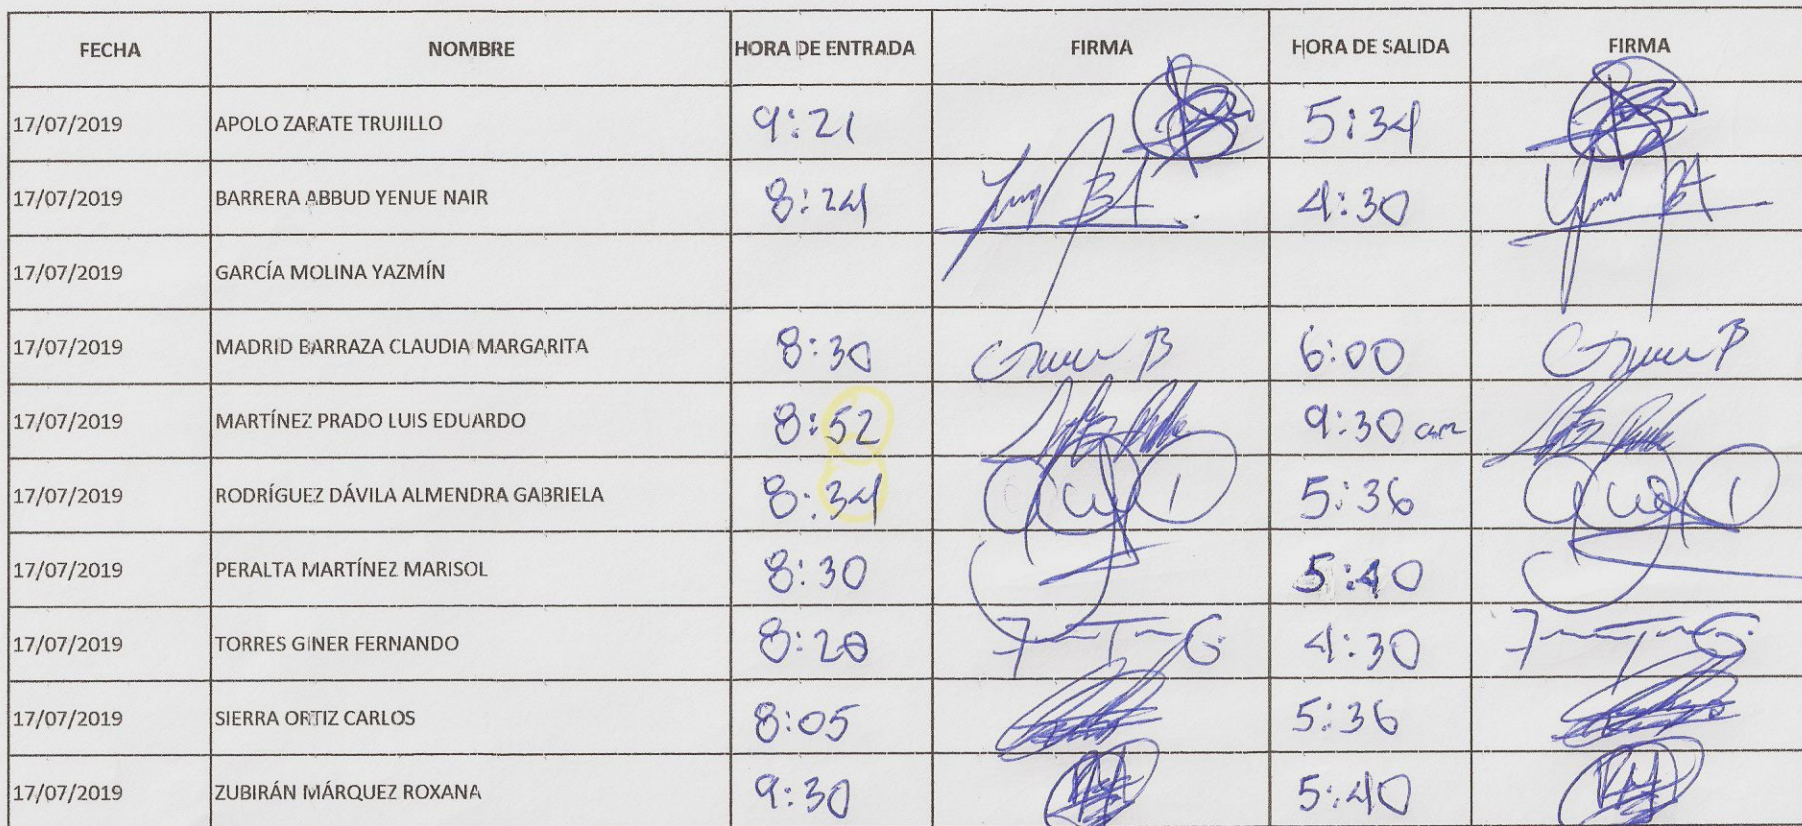 FECHA NOMBRE HORA DE ENTRADA FIRMA HORA DE SALIDA FIRMA
17/07/2019 APOLO ZARATE TRUJILLO 9:21 5:34
17/07/2019 BARRERA ABBUD YENUE NAIR 8:24 4:30
17/07/2019 GARCÍA MOLINA YAZMÍN
17/07/2019 MADRID BARRAZA CLAUDIA MARGARITA 8:30 6:00
17/07/2019 MARTÍNEZ PRADO LUIS EDUARDO 8:52 9:30 am
17/07/2019 RODRÍGUEZ DÁVILA ALMENDRA GABRIELA 8:34 5:36
17/07/2019 PERALTA MARTÍNEZ MARISOL 8:30 5:40
17/07/2019 TORRES GINER FERNANDO 8:20 4:30
17/07/2019 SIERRA ORTIZ CARLOS 8:05 5:36
17/07/2019 ZUBIRÁN MÁRQUEZ ROXANA 9:30 5:40